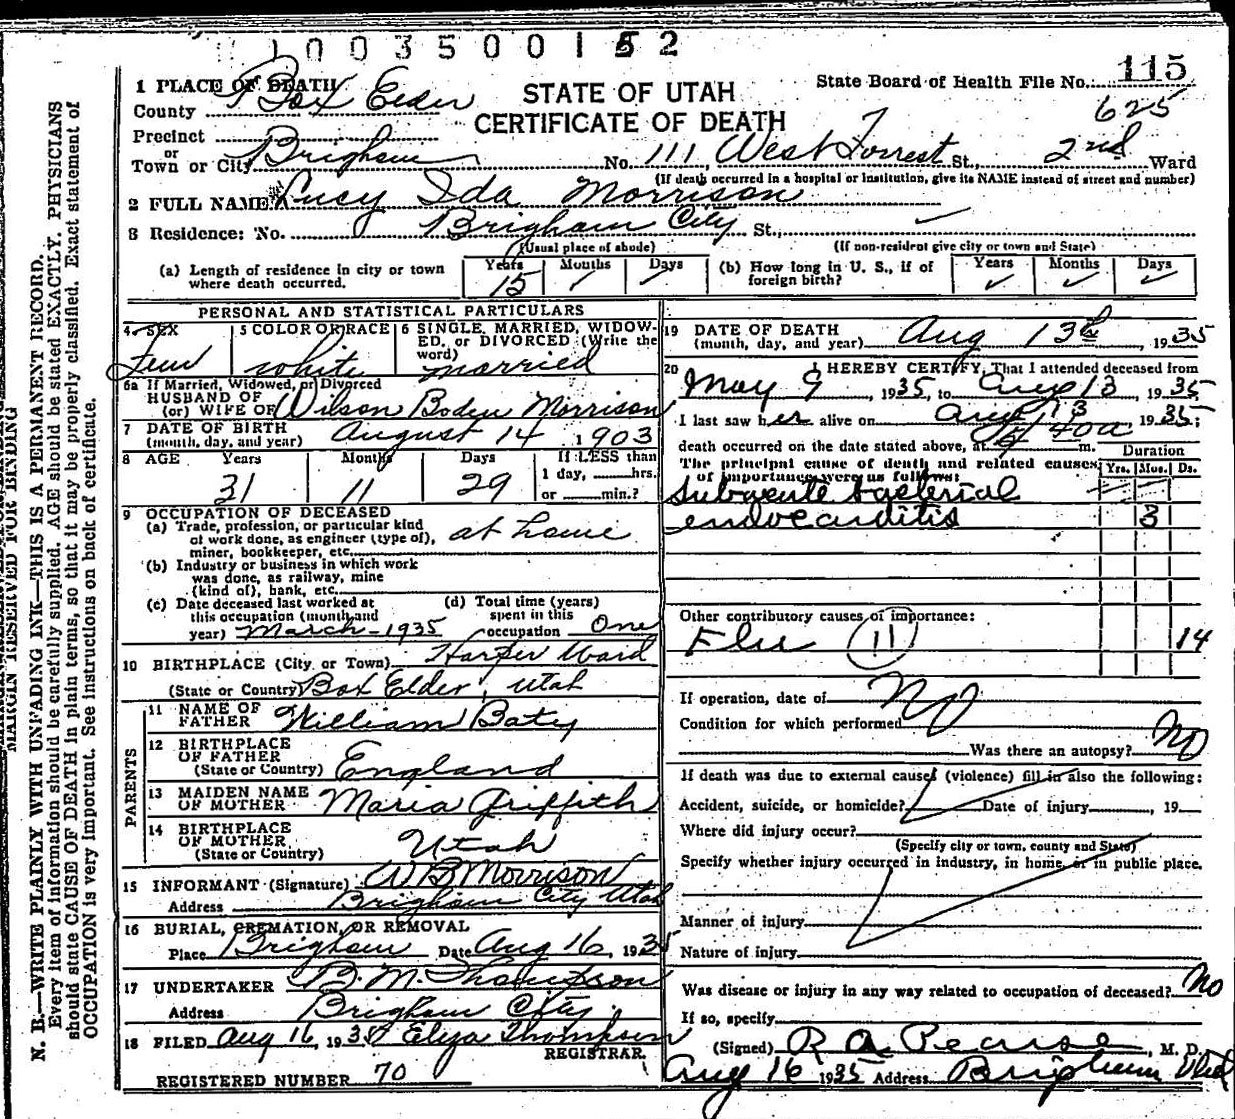 1003500152
1 PLACE OF DEATH
County Box Elder
STATE OF UTAH
CERTIFICATE OF DEATH
State Board of Health File No. 115
625
Precinct
or
Town or City Brigham No. 111 West Forrest St., 2nd Ward
(If death occurred in a hospital or institution, give its NAME instead of street and number)
2 FULL NAME Lucy Ida Morrison
3 Residence: No. Brigham City St.,
(Usual place of abode) (If non-resident give city or town and State)
(a) Length of residence in city or town where death occurred. Years 15 Months Days
(b) How long in U. S., if of foreign birth? Years Months Days
PERSONAL AND STATISTICAL PARTICULARS
4 SEX Fem
5 COLOR OR RACE white
6 SINGLE, MARRIED, WIDOWED, or DIVORCED (Write the word) married
6a If Married, Widowed, or Divorced
HUSBAND OF
(or) WIFE OF Wilson Boden Morrison
7 DATE OF BIRTH
(month, day, and year) August 14 1903
8 AGE Years 31 Months 11 Days 29 If LESS than 1 day, hrs. or min.?
9 OCCUPATION OF DECEASED
(a) Trade, profession, or particular kind
of work done, as engineer (type of),
miner, bookkeeper, etc. at home
(b) Industry or business in which work
was done, as railway, mine
(kind of), bank, etc.
(c) Date deceased last worked at
this occupation (month and
year) March-1935
(d) Total time (years)
spent in this
occupation One
10 BIRTHPLACE (City or Town) Harper Ward
(State or Country) Box Elder, Utah
PARENTS
11 NAME OF
FATHER William Baty
12 BIRTHPLACE
OF FATHER
(State or Country) England
13 MAIDEN NAME
OF MOTHER Maria Griffith
14 BIRTHPLACE
OF MOTHER
(State or Country) Utah
15 INFORMANT (Signature) W B Morrison
Address Brigham City Utah
16 BURIAL, CREMATION, OR REMOVAL
Place Brigham Date Aug 16, 1935
17 UNDERTAKER B. M. Thompson
Address Brigham City
18 FILED Aug 16, 1935 Eliza Thompson
REGISTRAR.
REGISTERED NUMBER 70
19 DATE OF DEATH
(month, day, and year) Aug 13th, 1935
20 I HEREBY CERTIFY, That I attended deceased from
May 9, 1935, to Aug 13, 1935,
I last saw her alive on Aug 13 1935;
death occurred on the date stated above, at 40a m.
The principal cause of death and related causes
of importance were as follows:
Duration
Yrs. Mos. Ds.
Subacute bacterial
endocarditis 3
Other contributory causes of importance:
Flu 11 14
If operation, date of No
Condition for which performed
Was there an autopsy? No
If death was due to external causes (violence) fill in also the following:
Accident, suicide, or homicide? Date of injury, 19
Where did injury occur?
(Specify city or town, county and State)
Specify whether injury occurred in industry, in home, or in public place.
Manner of injury
Nature of injury
Was disease or injury in any way related to occupation of deceased? No
If so, specify
(Signed) R A Pearse, M. D.
Aug 16 1935 Address Brigham Utah
MARGIN RESERVED FOR BINDING
N. B.—WRITE PLAINLY WITH UNFADING INK—THIS IS A PERMANENT RECORD.
Every item of information should be carefully supplied. AGE should be stated EXACTLY. PHYSICIANS
should state CAUSE OF DEATH in plain terms, so that it may be properly classified. Exact statement of
OCCUPATION is very important. See instructions on back of certificate.